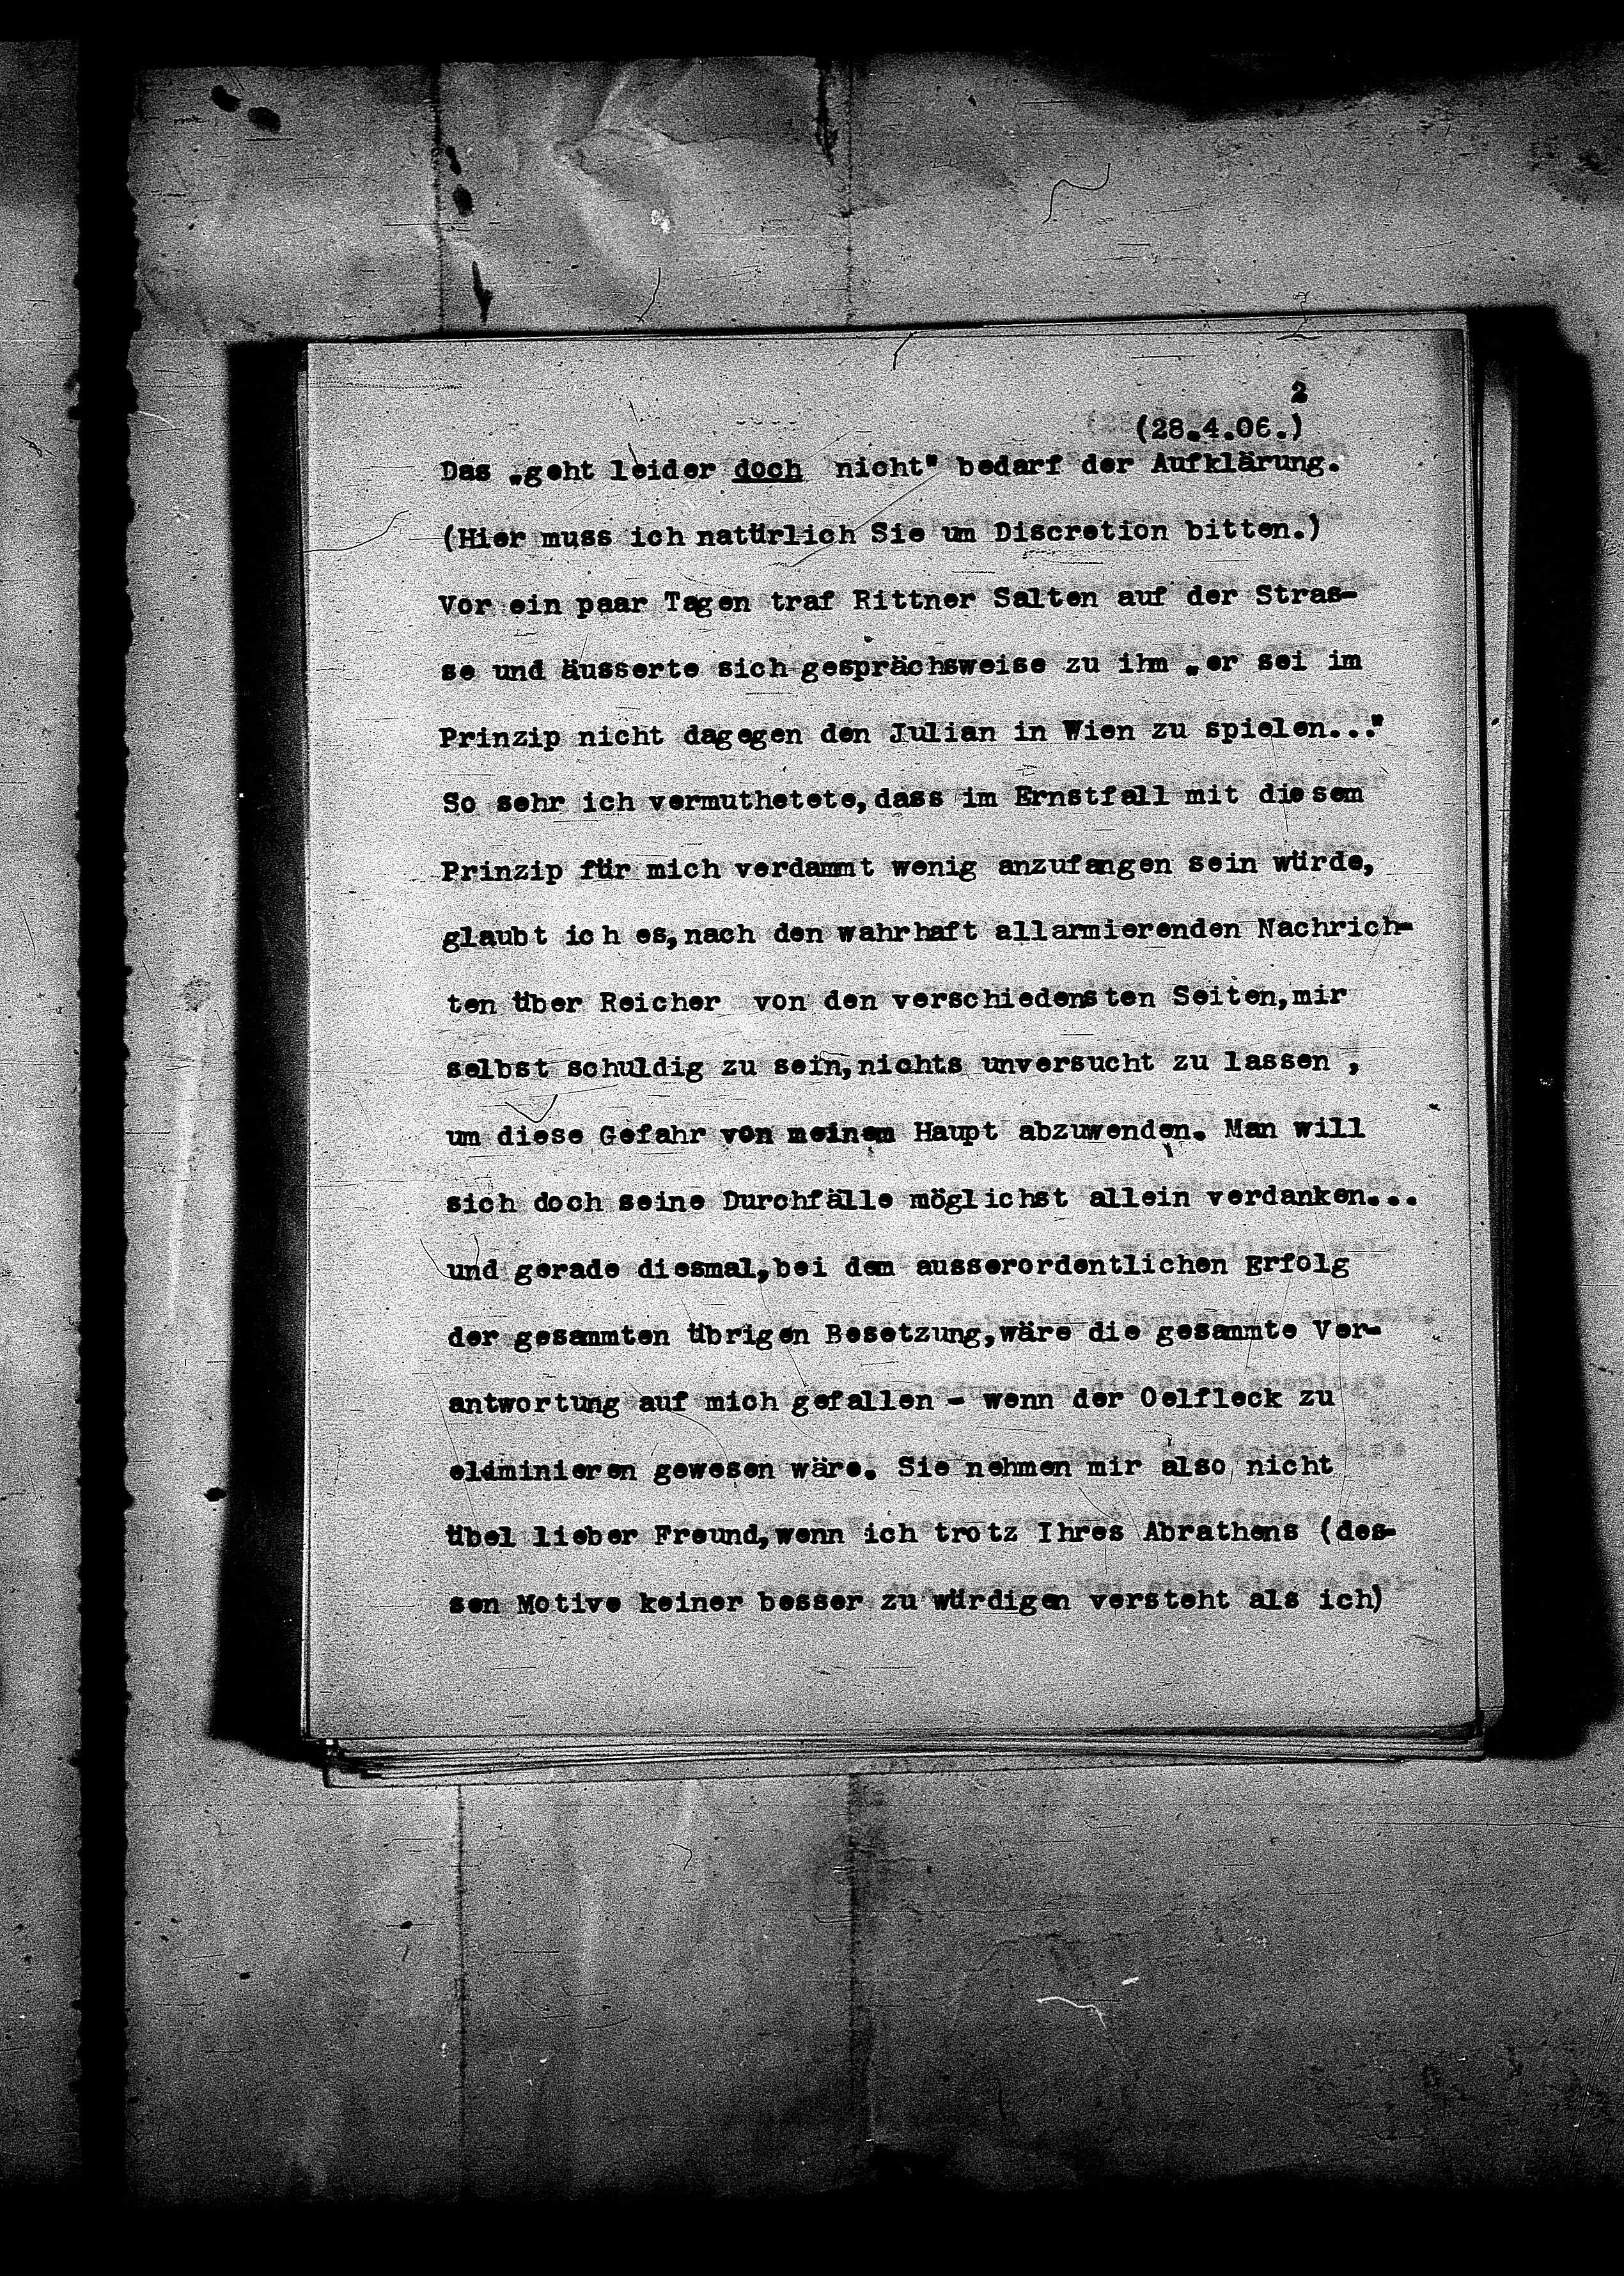 2
(28.4.06.)
Das „geht leider doch nicht" bedarf der Aufklärung.
(Hier muss ich natürlich Sie um Discretion bitten.)
Vor ein paar Tagen traf Rittner Salten auf der Stras-
se und äusserte sich gesprächsweise zu ihm „er sei im
Prinzip nicht dagegen den Julian in Wien zu spielen..."
So sehr ich vermuthetete, dass im Ernstfall mit diesem
Prinzip für mich verdammt wenig anzufangen sein würde,
glaubt ich es, nach den wahrhaft allarmierenden Nachrich-
ten über Reicher von den verschiedensten Seiten, mir
selbst schuldig zu sein, nichts unversucht zu lassen ,
um diese Gefahr von meinem Haupt abzuwenden. Man will
sich doch seine Durchfälle möglichst allein verdanken...
und gerade diesmal, bei dem ausserordentlichen Erfolg
der gesammten übrigen Besetzung, wäre die gesammte Ver-
antwortung auf mich gefallen - wenn der Oelfleck zu
eliminieren gewesen wäre. Sie nehmen mir also nicht
übel lieber Freund, wenn ich trotz Ihres Abrathens (des-
sen Motive keiner besser zu würdigen versteht als ich)